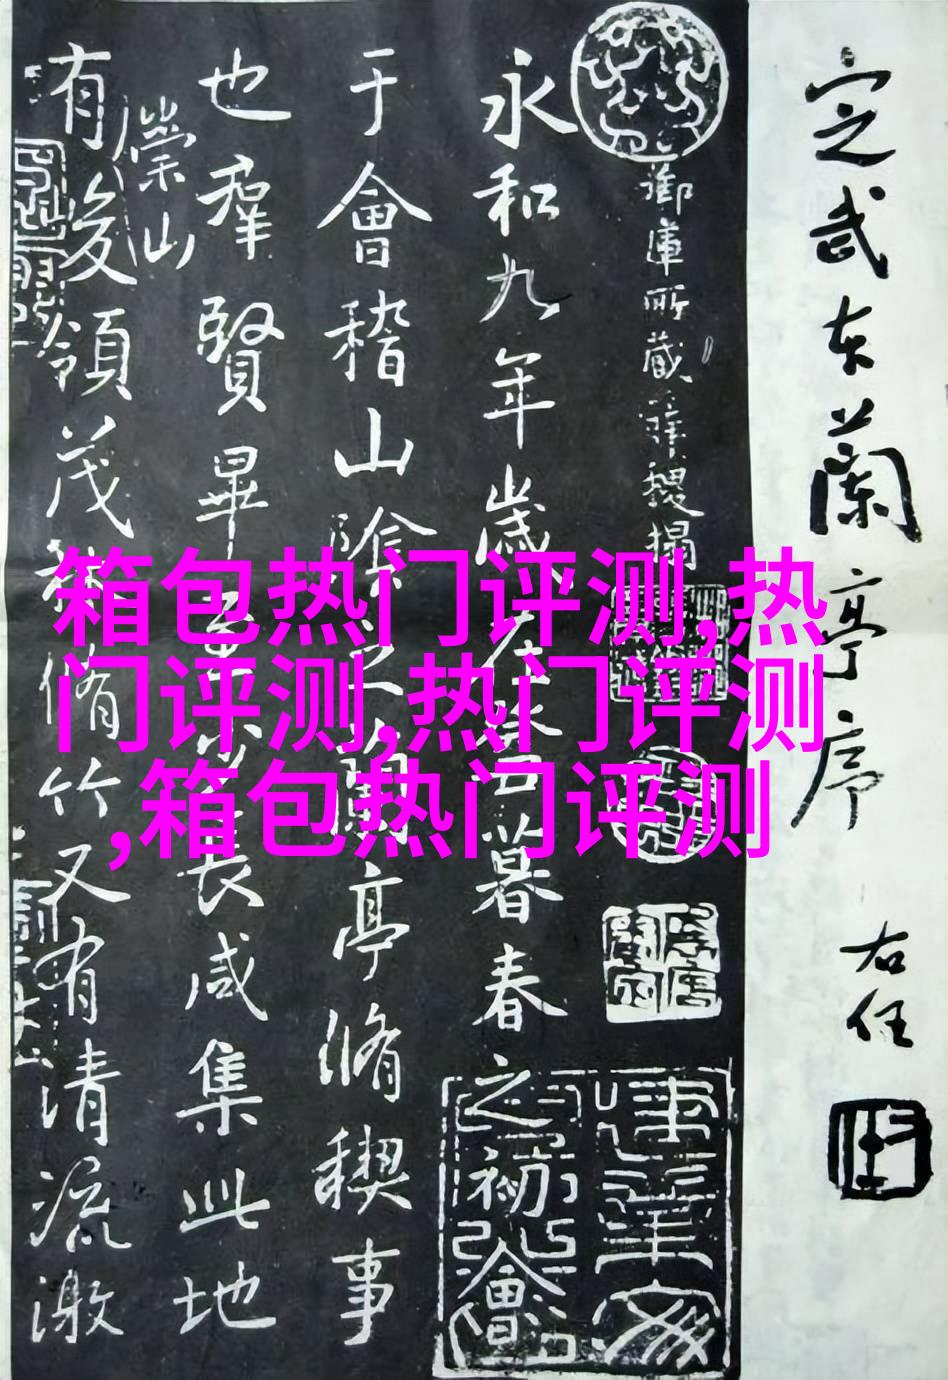 定武本蘭亭序
右任
御庫所藏薛稷搨
永和九年歲在癸丑暮春之初會
于會稽山陰之蘭亭脩稧事
也羣賢畢至少長咸集此地
崇山
有峻領茂林脩竹又有清流激
箱包热门评测,热
门评测,热门评测
,箱包热门评测